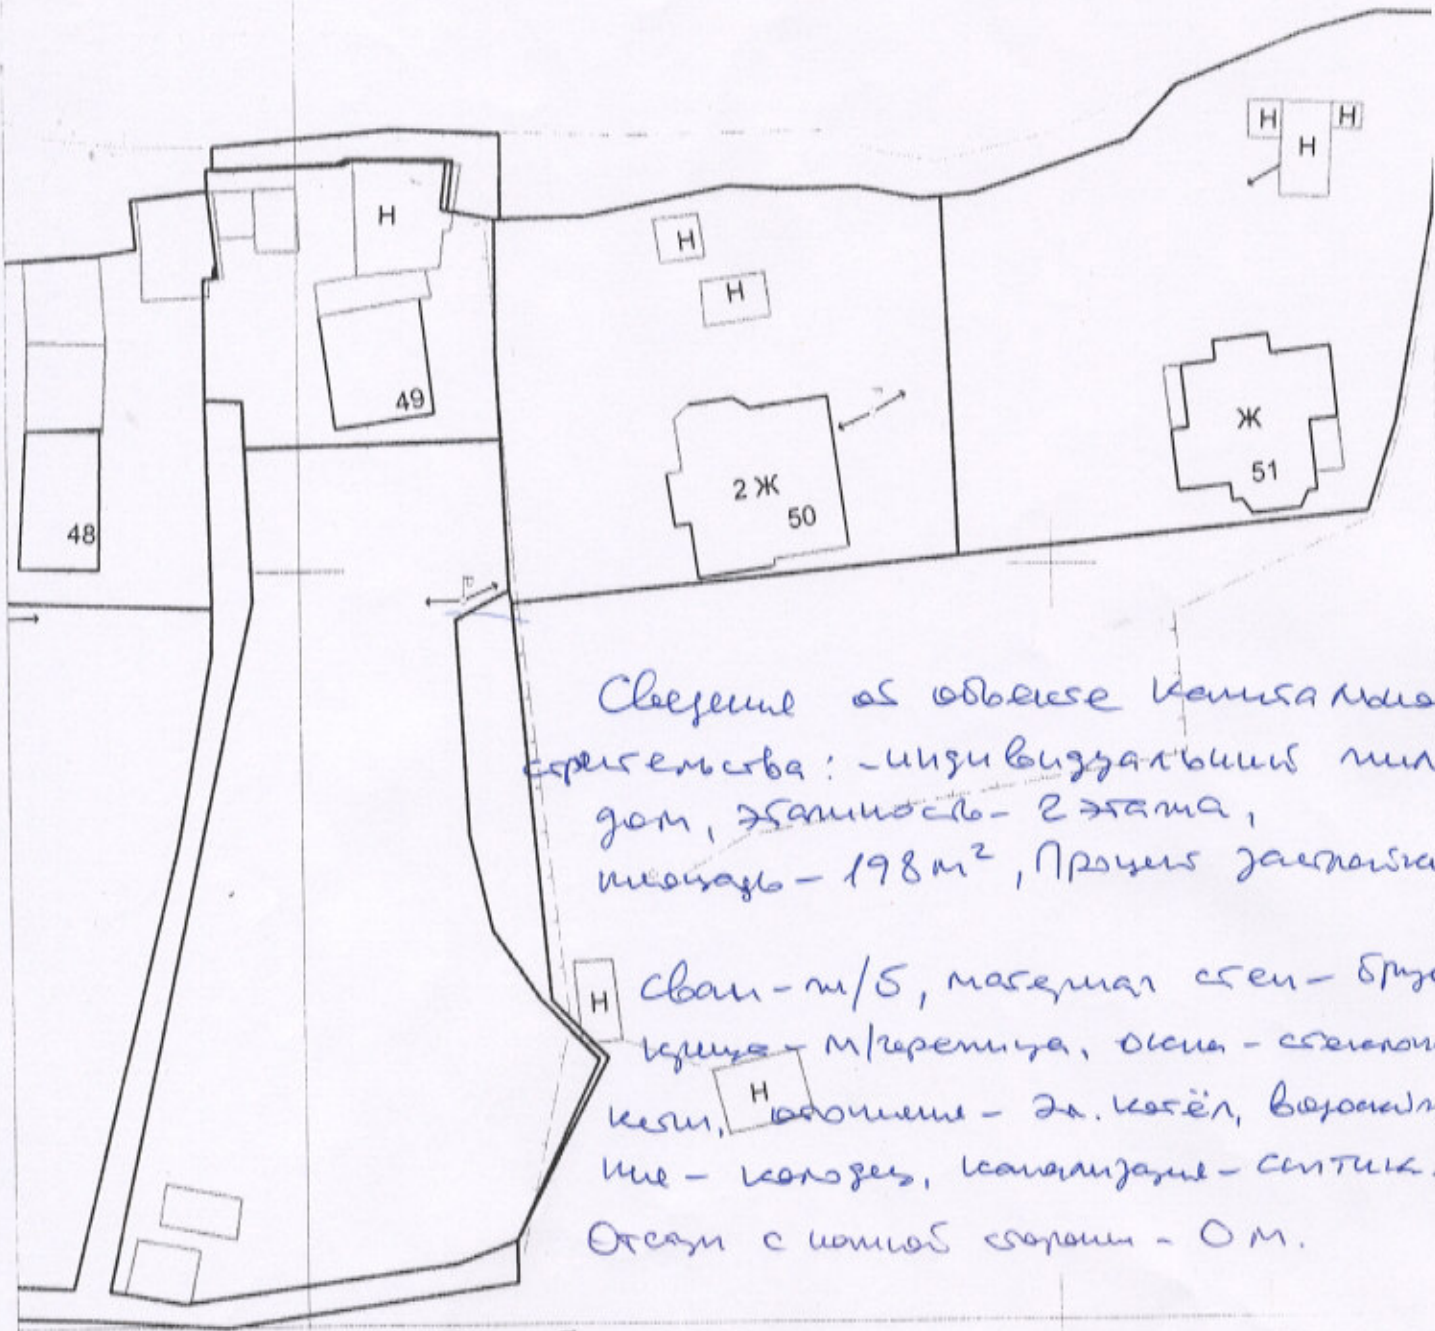 Н Н
Н
Н
Н
Н
49
Ж
51
2 Ж
50
48
Сведения об объекте капитально
строительства: - индивидуальный жил
дом, этажность - 2 этажа,
площадь - 198 м², Процент застройки
Н
Сваи - ж/б, материал стен - брус
крыша - м/черепица, окна - стеклопа
Н
кеты, отопление - эл. котёл, водоснабж
ние - колодец, канализация - септик.
Отступ с южной стороны - 0 м.